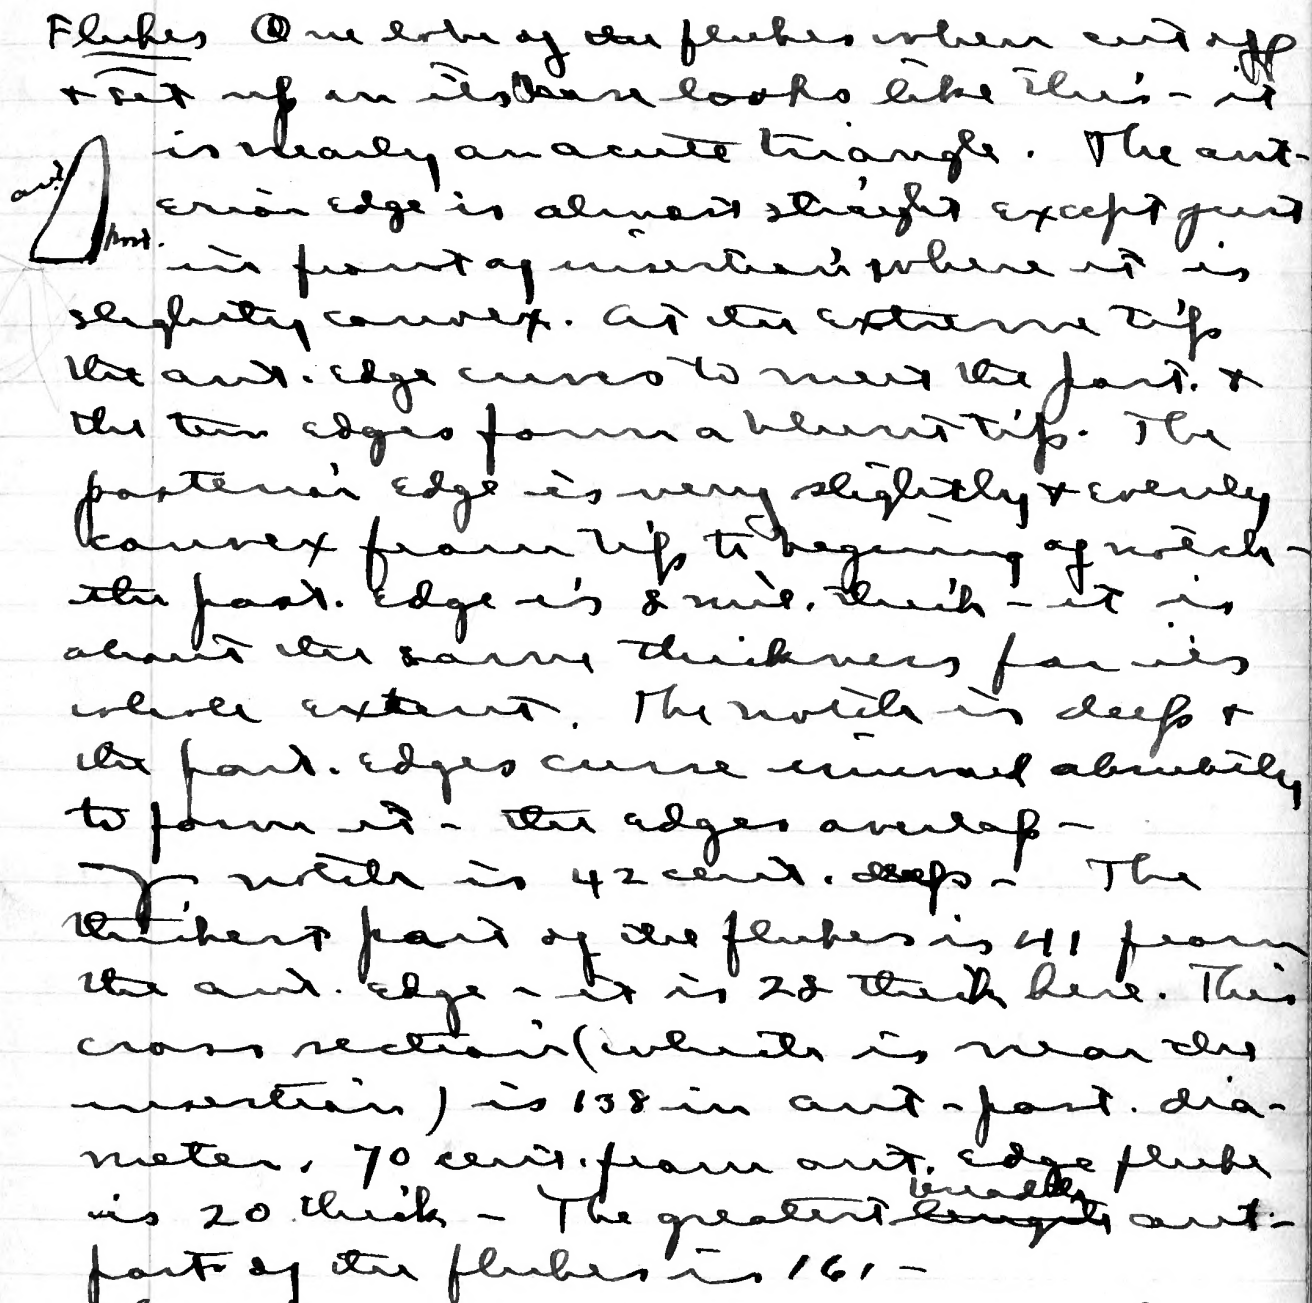 Flukes One lobe of the flukes when cut off
+ set up on its base looks like this - it
is nearly an acute triangle. The ant-
ant.
erior edge is almost straight except just
post.
in front of insertion where it is
slightly convex. At the extreme tip
the ant. edge curves to meet the post. +
the two edges form a blunt tip. The
posterior edge is very slightly + evenly
convex from tip to begining of notch -
the post. edge is 8 mil. thick - it is
about the same thickness for its
whole extent. The notch is deep +
the post. edges curve inward abruptly
to form it - the edges overlap -
notch is 42 cent. deep - The
thickest part of the flukes is 41 from
the ant. edge - it is 28 thick here. This
cross section (which is near the
insertion) is 138 in ant-post. dia-
meter. 70 cent. from ant. edge fluke
breadth
is 20 thick - The greatest length ant.-
post of the flukes is 161 -